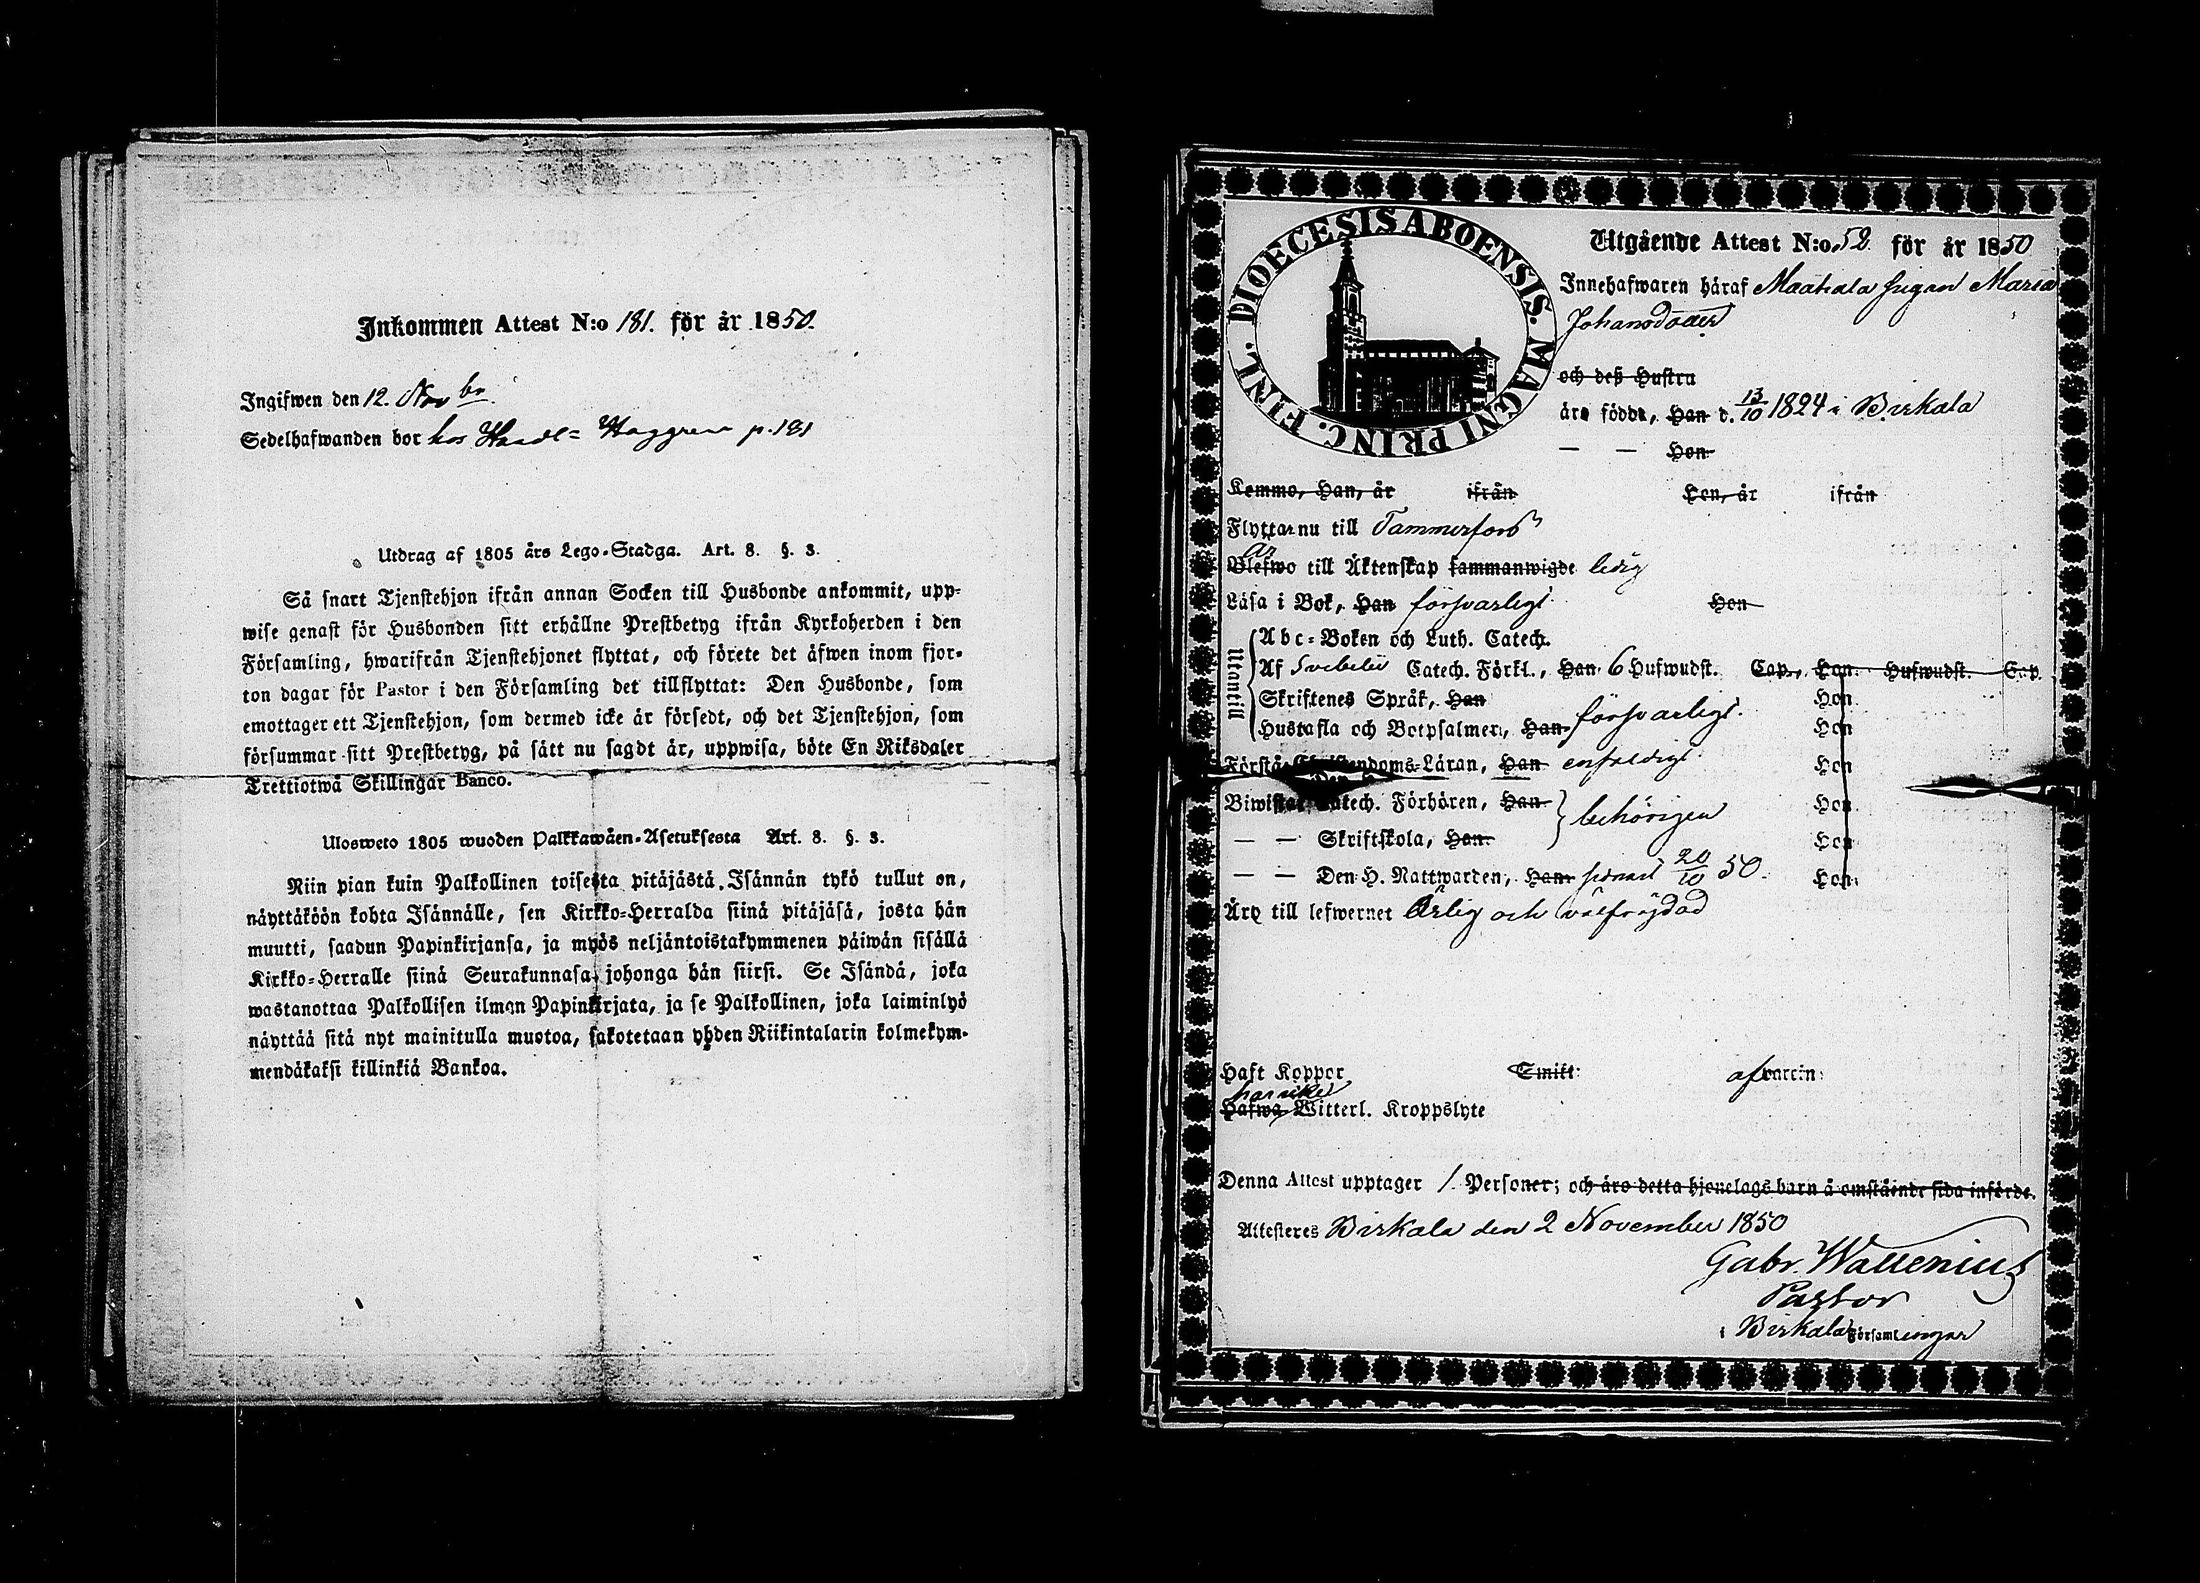 Inkommen Attest N:o 181. för år 1850.
Ingifwen den 12. Novbr.
Sedelhafwanden bor hos Handl= Haggren p. 181
Utdrag af 1805 års Lego-Stadga. Art. 8. §. 3.
Så snart Tjenstehjon ifrån annan Socken till Husbonde ankommit, upp-
wise genast för Husbonden sitt erhållne Prestbetyg ifrån Kyrkoherden i den
Församling, hwarifrån Tjenstehjonet flyttat, och förete det äfwen inom fjor-
ton dagar för Pastor i den Församling det tillflyttat: Den Husbonde, som
emottager ett Tjenstehjon, som dermed icke är försedt, och det Tjenstehjon, som
försummar sitt Prestbetyg, på sätt nu sagdt är, uppwisa, böte En Riksdaler
Trettiotwå Skillingar Banco.
Ulosweto 1805 wuoden Palkkawäen-Asetuksesta Art. 8. §. 3.
Niin pian kuin Palkollinen toisesta pitäjästä Isännän tykö tullut on,
näyttäköön kohta Isännälle, sen Kirkko-Herralda siinä pitäjäsä, josta hän
muutti, saadun Papinkirjansa, ja myös neljäntoistakymmenen päiwän sisällä
Kirkko-Herralle siinä Seurakunnasa johonga hän siirsi. Se Isändä, joka
wastanottaa Palkollisen ilman Papinkirjata, ja se Palkollinen, joka laiminlyö
näyttää sitä nyt mainitulla muotoa, sakotetaan yhden Riikintalarin kolmekym-
mendäkaksi killinkiä Bankoa.
DIOECESIS ABOENSIS. MAGNI PRINC. FINL.
Utgående Attest N:o 52 för år 1850
Innehafwaren häraf Maatiala pigan Maria
Johansdotter
och deß Hustru
äro födde, Han d. 13/10 1824 i Birkala
— — Hon
Kommo, Han, år ifrån Hon, år ifrån
Flytta nu till Tammerfors
är
Blefwo till Äktenskap sammanwigde ledig
Läsa i Bok, Han försvarligt Hon
Utantill
Abc-Boken och Luth. Catech.
Af Svebelii Catech. Förkl., Han 6 Hufwudst. Cap., Hon Hufwudst. Cap.
Skriftenes Språk, Han Hon
Hustafla och Botpsalmer, Han försvarligt. Hon
Förstå Christendoms-Läran, Han enfaldigt Hon
Biwistat Catech. Förhören, Han behörigen Hon
— — Skriftskola, Han Hon
— — Den H. Nattwarden, Han senast 20/10 50. Hon
Äro till lefwernet Ärlig och välfrägdad
Haft Koppor Smitt: af vaccin:
har icke
Hafwa Witterl. Kroppslyte
Denna Attest upptager 1. Personer; och äro detta hjonelags barn å omstående sida införde.
Attesteres Birkala den 2 November 1850
Gabr. Wallenius
Pastor
i Birkala Församlingar